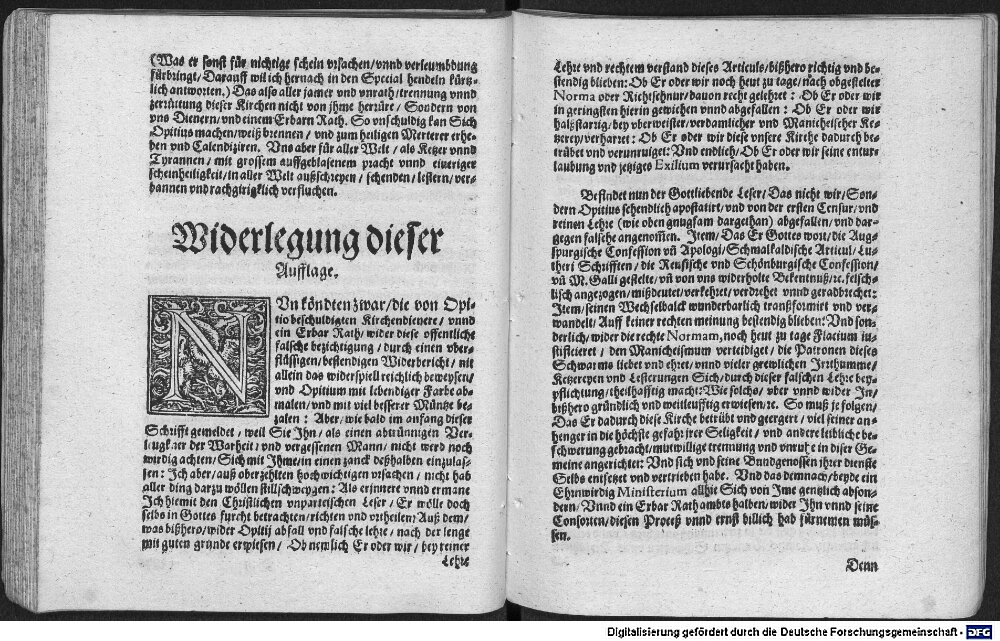 (Was er sonst für nichtige schein vrsachen/vnnd verleumbdung
fürbringt/Darauff wil ich hernach in den Special hendeln kürtz-
lich antworten.) Das also aller jamer vnd vnrath/trennung vnnd
zerrüttung dieser Kirchen nicht von jhme herrüret/Sondern von
vns Dienern/vnd einem Erbarn Rath. So vnschuldig kan Sich
Opitius machen/weiß brennen / vnd zum heiligen Merterer erhe-
ben vnd Calendiziren. Vns aber für aller Welt / als Ketzer vnnd
Tyrannen / mit grossem auffgeblasenem pracht vnnd eiueriger
scheinheiligkeit/in aller Welt außschreyen / schenden / lestern/ver-
bannen vnd rachgiriglich verfluchen.
Widerlegung dieser
Aufflage.
NVn köndten zwar/die von Opi-
tio beschuldigten Kirchendienere / vnnd
ein Erbar Rath/wider diese offentliche
falsche bezichtigung / durch einen vber-
flüssigen/bestendigen Widerbericht / nit
allein das widerspiell reichlich beweysen/
vnd Opitium mit lebendiger Farbe ab-
malen/vnd mit viel besserer Müntze be-
zalen : Aber/wie bald im anfang dieser
Schrifft gemeldet / weil Sie Ihn/als einen abtrünnigen Ver-
leugkner der Warheit / vnd vergessenen Mann/ nicht werd noch
wirdig achten/Sich mit Ihme/in einen zanck deßhalben einzulas-
sen: Ich aber/auß oberzehlten hochwichtigen vrsachen / nicht hab
aller ding darzu wöllen stillschweygen: Als erinnere vnnd ermane
Ich hiemit den Christlichen vnparteischen Leser / Er wölle doch
selbs in Gottes furcht betrachten/richten vnd vrtheilen: Auß dem/
was bißhero/wider Opitij abfall vnd falsche lehre / nach der lenge
mit guten grunde erwiesen / Ob nemlich Er oder wir / bey reiner
Lehre
Lehre vnd rechtem verstand dieses Articuls/bißhero richtig vnd be-
stendig blieben: Ob Er oder wir noch heut zu tage/nach obgestelter
Norma oder Richtschnur/dauon recht gelehret : Ob Er oder wir
in geringsten hierin gewichen vnnd abgefallen : Ob Er oder wir
halßstarrig/bey vberweister/verdamlicher vnd Manicheischer Ke-
tzerey/verharret : Ob Er oder wir diese vnsere Kirche dadurch be-
trübet vnd verunruiget: Vnd endlich/Ob Er oder wir seine entur-
laubung vnd jetziges Exilium verursacht haben.
Befindet nun der Gottliebende Leser/Das nicht wir/Son-
dern Opitius schendlich apostatirt/vnd von der ersten Censur/vnd
reinen Lehre (wie oben gnugsam dargethan) abgefallen/vnd dar-
gegen falsche angenommen. Item/Das Er Gottes wort/die Aug-
spurgische Confession vñ Apologi/Schmalkaldische Articul/Lu-
theri Schrifften / die Reusische vnd Schönburgische Confession/
vñ M. Galli gestelte/vñ von vns widerholte Bekentnuß/ꝛc. felsch-
lisch angezogen/mißdeutet/verkehret/verdrehet vnnd geradbrechet:
Item/seinen Wechselbalck wunderbarlich transformirt vnd ver-
wandelt/Auff keiner rechten meinung bestendig blieben: Vnd son-
derlich/wider die rechte Normam, noch heut zu tage Flacium iu-
stificieret / den Manicheismum verteidiget / die Patronen dieses
Schwarms liebet vnd ehret/vnnd vieler grewlichen Irrthumme/
Ketzereyen vnd Lesterungen Sich/durch dieser falschen Lehre bey-
pflichtung/theilhafftig macht: Wie solchs/vber vnnd wider Jn/
bißhero gründlich vnd weitleufftig erwiesen/ꝛc. So muß je folgen/
Das Er dadurch diese Kirche betrübt vnd geergert / viel seiner an-
henger in die höchste gefahr jrer Seligkeit / vnd andere leibliche be-
schwerung gebracht/mutwillige trennung vnd vnruhe in diser Ge-
meine angerichtet: Vnd sich vnd seine Bundgenossen jhrer dienste
Selbs entsetzet vnd vertrieben habe. Vnd das demnach/beyde ein
Ehnwirdig Ministerium allhie Sich von Jme gentzlich abson-
dern/Vnnd ein Erbar Rath ambts halben/wider Jhn vnnd seine
Consorten/diesen Proceß vnnd ernst billich hab fürnemen müs-
sen.
Denn
Digitalisierung gefördert durch die Deutsche Forschungsgemeinschaft - DFG